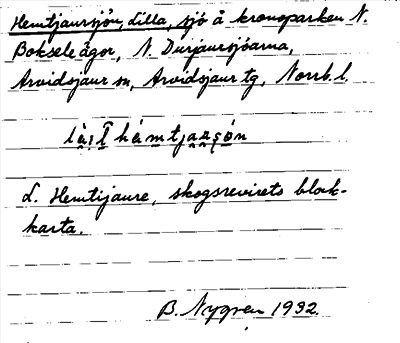 Hemtjaursjön, Lilla, sjö å kronoparken N.
Boksele ägor, N. Durjaursjöarna,
Arvidsjaur sn, Arvidsjaur tg, Norrb. l.
L. Hemtijaure, skogsrevirets blad-
karta.
B. Nygren 1932.